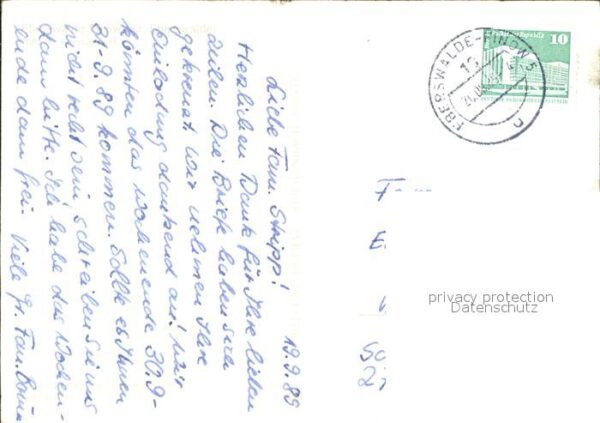 19.9.89
Liebe Fam. Stripp!
Herzlichen Dank für Ihre lieben
Zeilen. Die Briefe haben sich
gekreuzt. Wir nehmen Ihre
Einladung dankend an! Wir
könnten das Wochenende 30.9-
31.9.89 kommen. Sollte es Ihnen
nicht recht sein, schreiben Sie uns
dann bitte. Ich habe das Wochen-
ende dann frei. Viele Gr. Fam.
EBERSWALDE-FINOW 5
10
F
E
privacy protection
Datenschutz